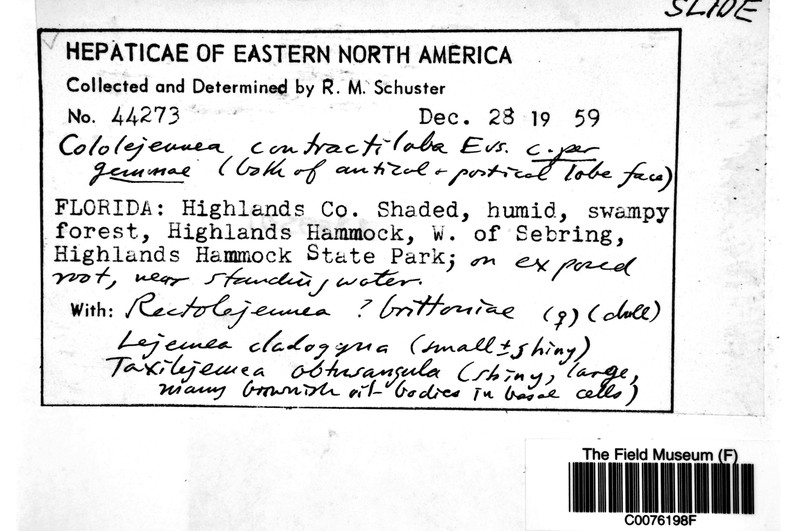 SLIDE
HEPATICAE OF EASTERN NORTH AMERICA
Collected and Determined by R. M. Schuster
No. 44273 Dec. 28 19 59
Cololejeunea contractiloba Evs. c. per
gemmae (both of antical + postical lobe face)
FLORIDA: Highlands Co. Shaded, humid, swampy
forest, Highlands Hammock, W. of Sebring,
Highlands Hammock State Park; on exposed
root, near standing water.
With: Rectolejeunea ? brittoniae (♀) (dull)
Lejeunea cladogyna (small ± shiny)
Taxilejeunea obtusangula (shiny, large,
many brownish oil-bodies in basal cells)
The Field Museum (F)
C0076198F